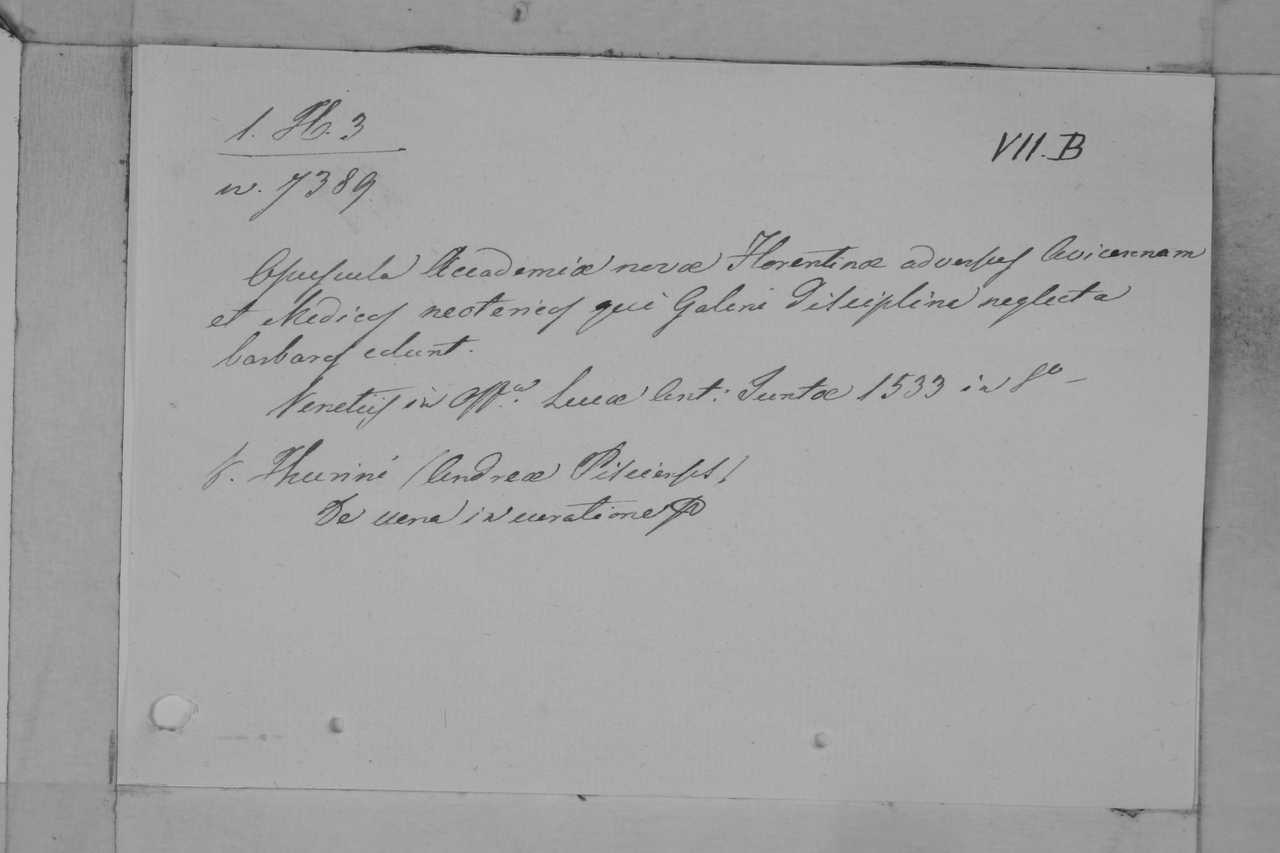 1. H. 3
n. 7389.
VII. B
Opuscula Accademiæ novæ Florentinæ adversus Avicennam
et Medicos neotericos qui Galeni Disciplina neglecta
barbaros colunt.
Venetiis in Offa. Lucæ Ant: Juntæ 1533 in 8o –
V. Thurini (Andreæ Pisciensis)
De vena in curatione